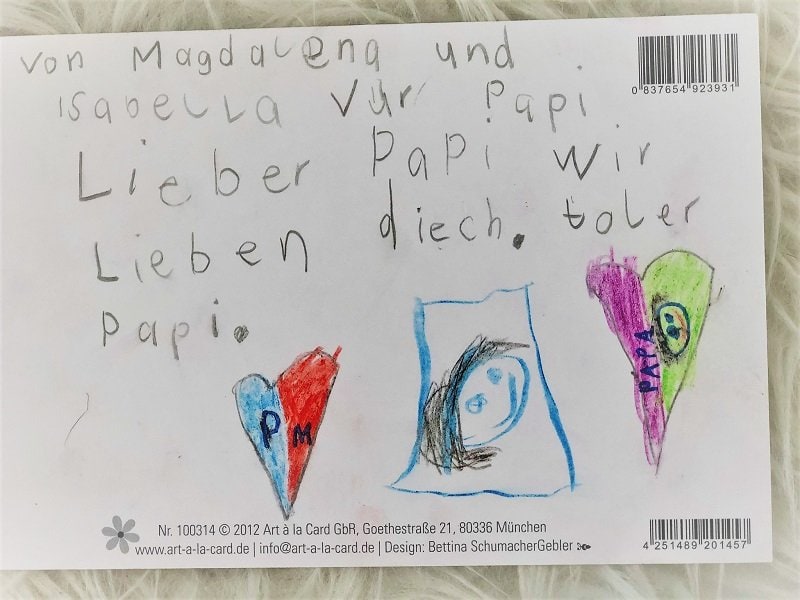 von Magdalena und
0 837654 923931
isabella Vür Papi
Lieber Papi wir
Lieben diech. toler
papi.
P M
PAPA
Nr. 100314 © 2012 Art à la Card GbR, Goethestraße 21, 80336 München
www.art-a-la-card.de | info@art-a-la-card.de | Design: Bettina SchumacherGebler
4 251489 201457